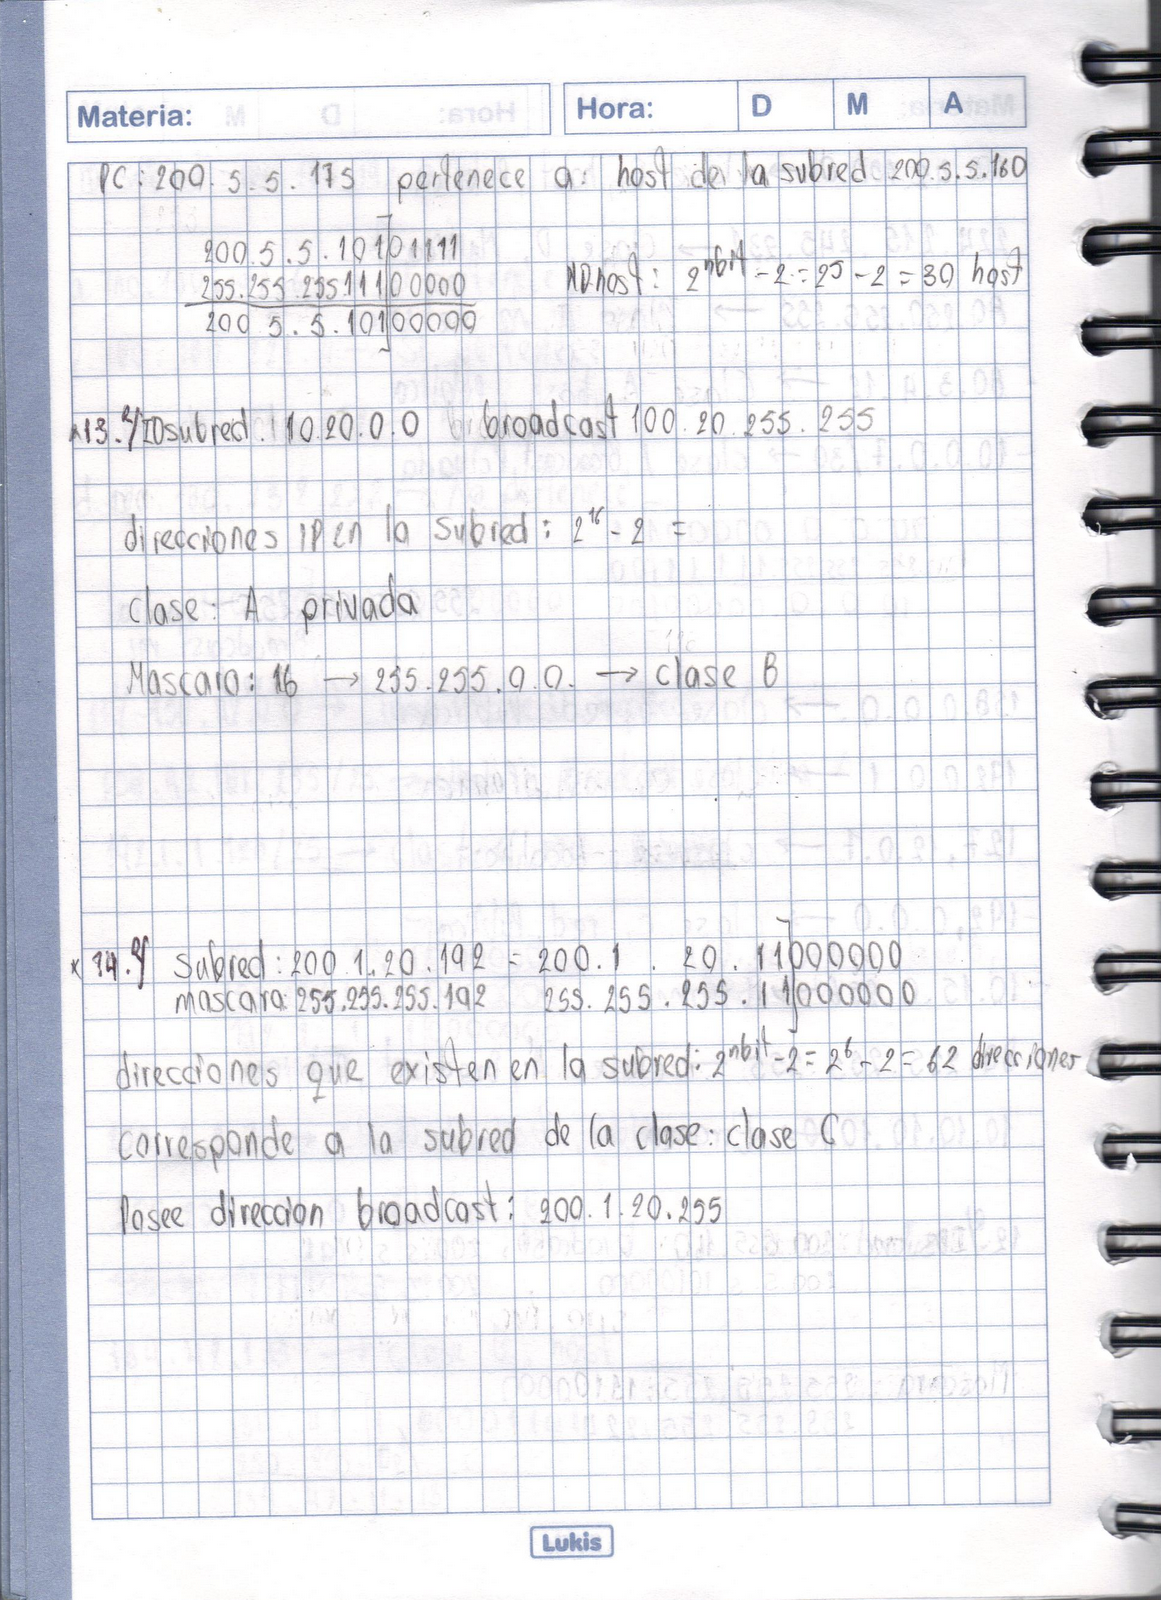 Materia:
Hora: D M A
PC: 200.5.5.175 pertenece a: host de la subred 200.5.5.160
200.5.5.10101111
255.255.25511100000
200 5.5.10100000
NDhost: 2^nbit - 2 = 2^5 - 2 = 30 host
*13.%IDsubred: 10.20.0.0 broadcast 100.20.255.255
direcciones IP en la subred: 2^16 - 2 =
clase: A privada
Mascara: 16 → 255.255.0.0. → clase B
* 14.% subred: 200.1.20.192 - 200.1.20.11000000
mascara: 255.255.255.192 255.255.255.11000000
direcciones que existen en la subred: 2^nbit - 2 = 2^6 - 2 = 62 direcciones
corresponde a la subred de la clase: clase C
Posee direccion broadcast: 200.1.20.255
Lukis